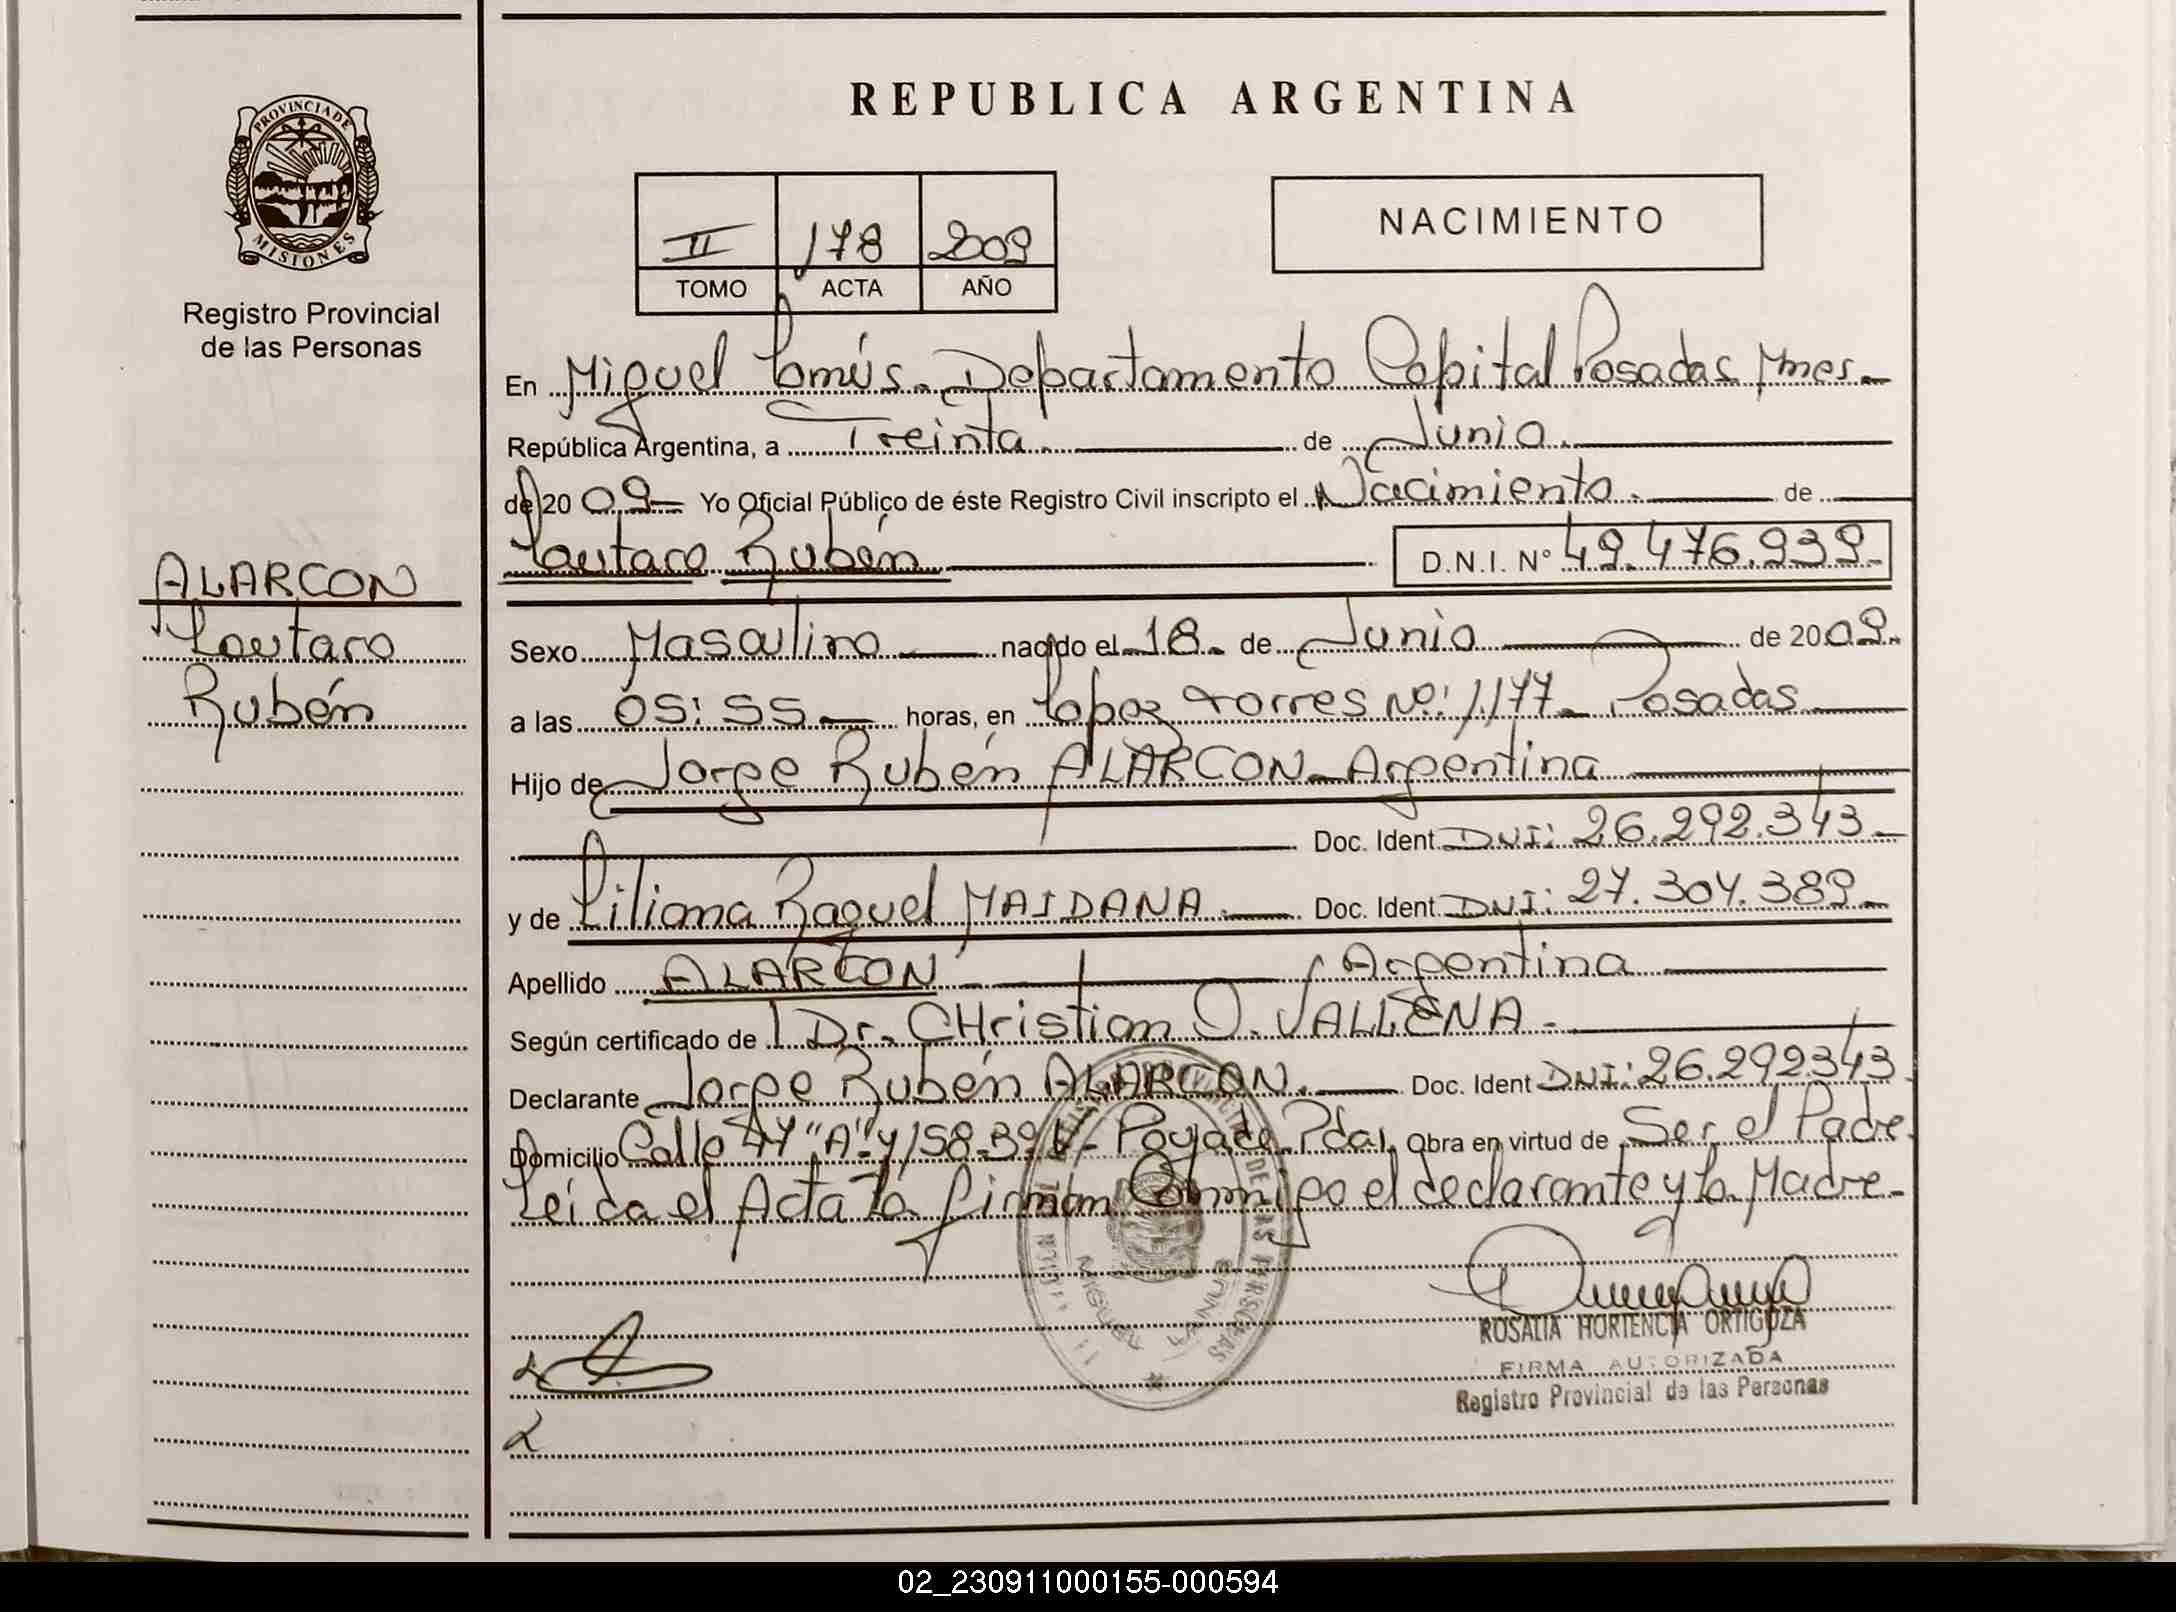 PROVINCIA DE
MISIONES
Registro Provincial
de las Personas
ALARCON
Lautaro
Rubén
REPUBLICA ARGENTINA
II 178 2009
TOMO ACTA AÑO
NACIMIENTO
En Miguel Lanús. Departamento Capital Posadas Mnes.
República Argentina, a Treinta. de Junio.
de 20 09 Yo Oficial Público de éste Registro Civil inscripto el Nacimiento. de
Lautaro Rubén D.N.I. Nº 49.476.939.
Sexo Masculino nacido el 18. de Junio de 20 09.
a las 05:55 horas, en Lopez Torres Nº: 1.177 Posadas
Hijo de Jorge Rubén ALARCON Argentina
Doc. Ident. DNI: 26.292.343
y de Liliana Raquel MAIDANA. Doc. Ident. DNI: 27.304.389
Apellido ALARCON Argentina
Según certificado de Dr. CHristian O. VALLENA.
Declarante Jorge Rubén ALARCON. Doc. Ident DNI: 26.292343
Domicilio Calle "A" y 158 Pdas. Obra en virtud de Ser el Padre.
Leída el Acta la firman Conmigo el declarante y la Madre
ROSALIA HORTENCIA ORTIGOZA
FIRMA AUTORIZADA
Registro Provincial de las Personas
02_230911000155-000594